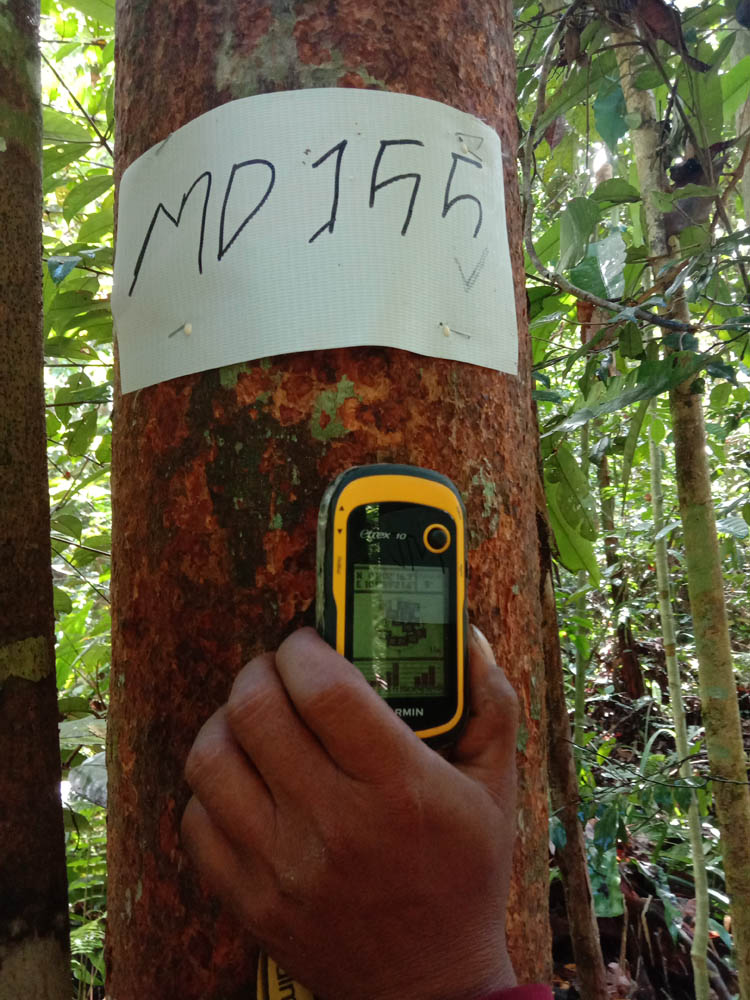 MD 155
eTrex 10
GARMIN